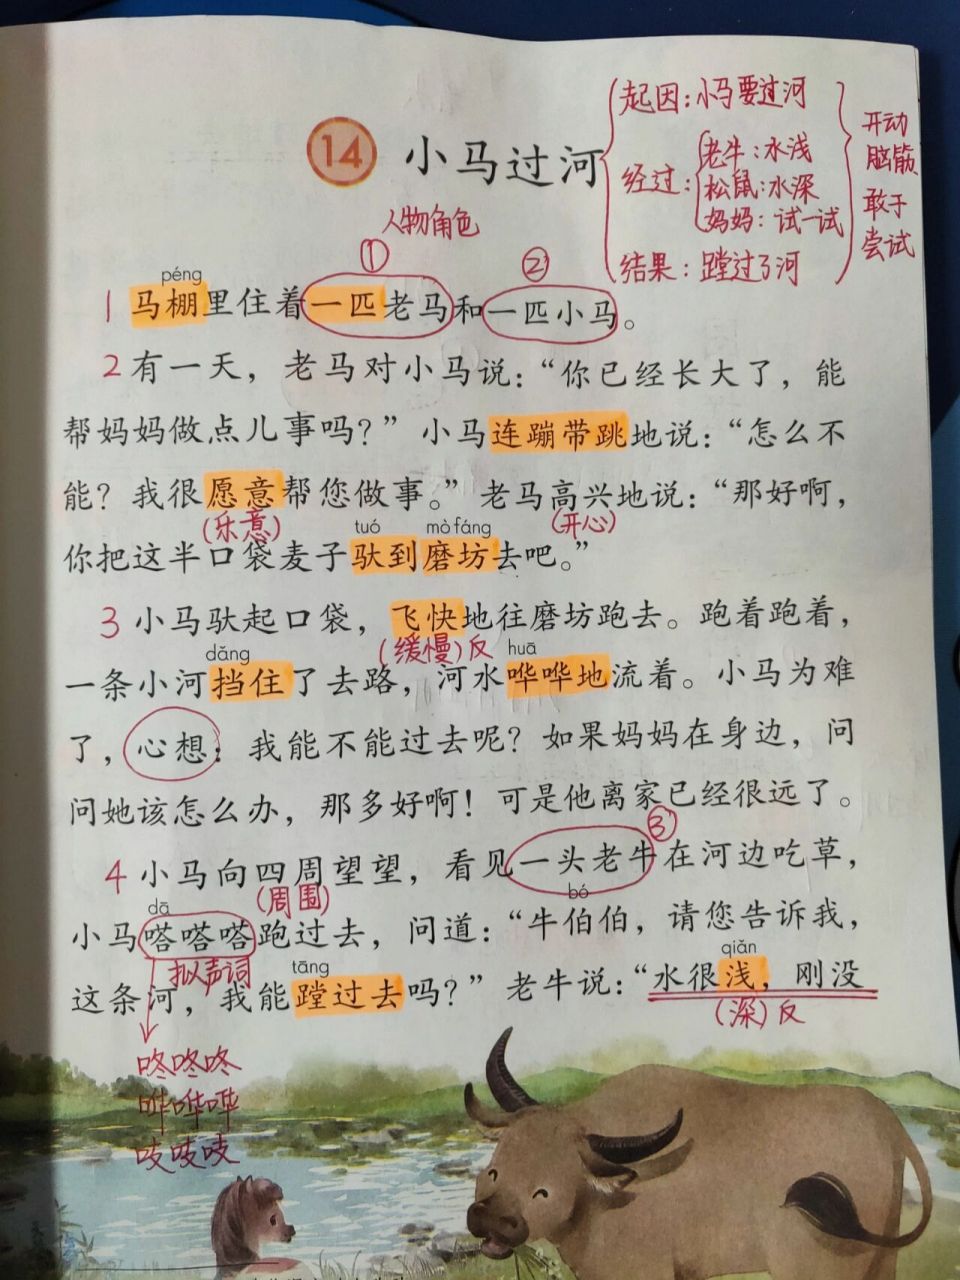 14 小马过河
起因：小马要过河
经过：
老牛：水浅
松鼠：水深
妈妈：试一试
结果：蹚过了河
开动
脑筋
敢于
尝试
人物角色
① ②
péng
1 马棚里住着一匹老马和一匹小马。
2 有一天，老马对小马说：“你已经长大了，能
帮妈妈做点儿事吗？”小马连蹦带跳地说：“怎么不
能？我很愿意帮您做事。”老马高兴地说：“那好啊，
(乐意) (开心)
tuó mò fáng
你把这半口袋麦子驮到磨坊去吧。”
3 小马驮起口袋，飞快地往磨坊跑去。跑着跑着，
(缓慢)反
dǎng huā
一条小河挡住了去路，河水哗哗地流着。小马为难
了，心想：我能不能过去呢？如果妈妈在身边，问
问她该怎么办，那多好啊！可是他离家已经很远了。
③
4 小马向四周望望，看见一头老牛在河边吃草，
(周围)
dā bó
小马嗒嗒嗒跑过去，问道：“牛伯伯，请您告诉我，
拟声词
tāng qiǎn
这条河，我能蹚过去吗？”老牛说：“水很浅，刚没
(深)反
咚咚咚
哗哗哗
吱吱吱